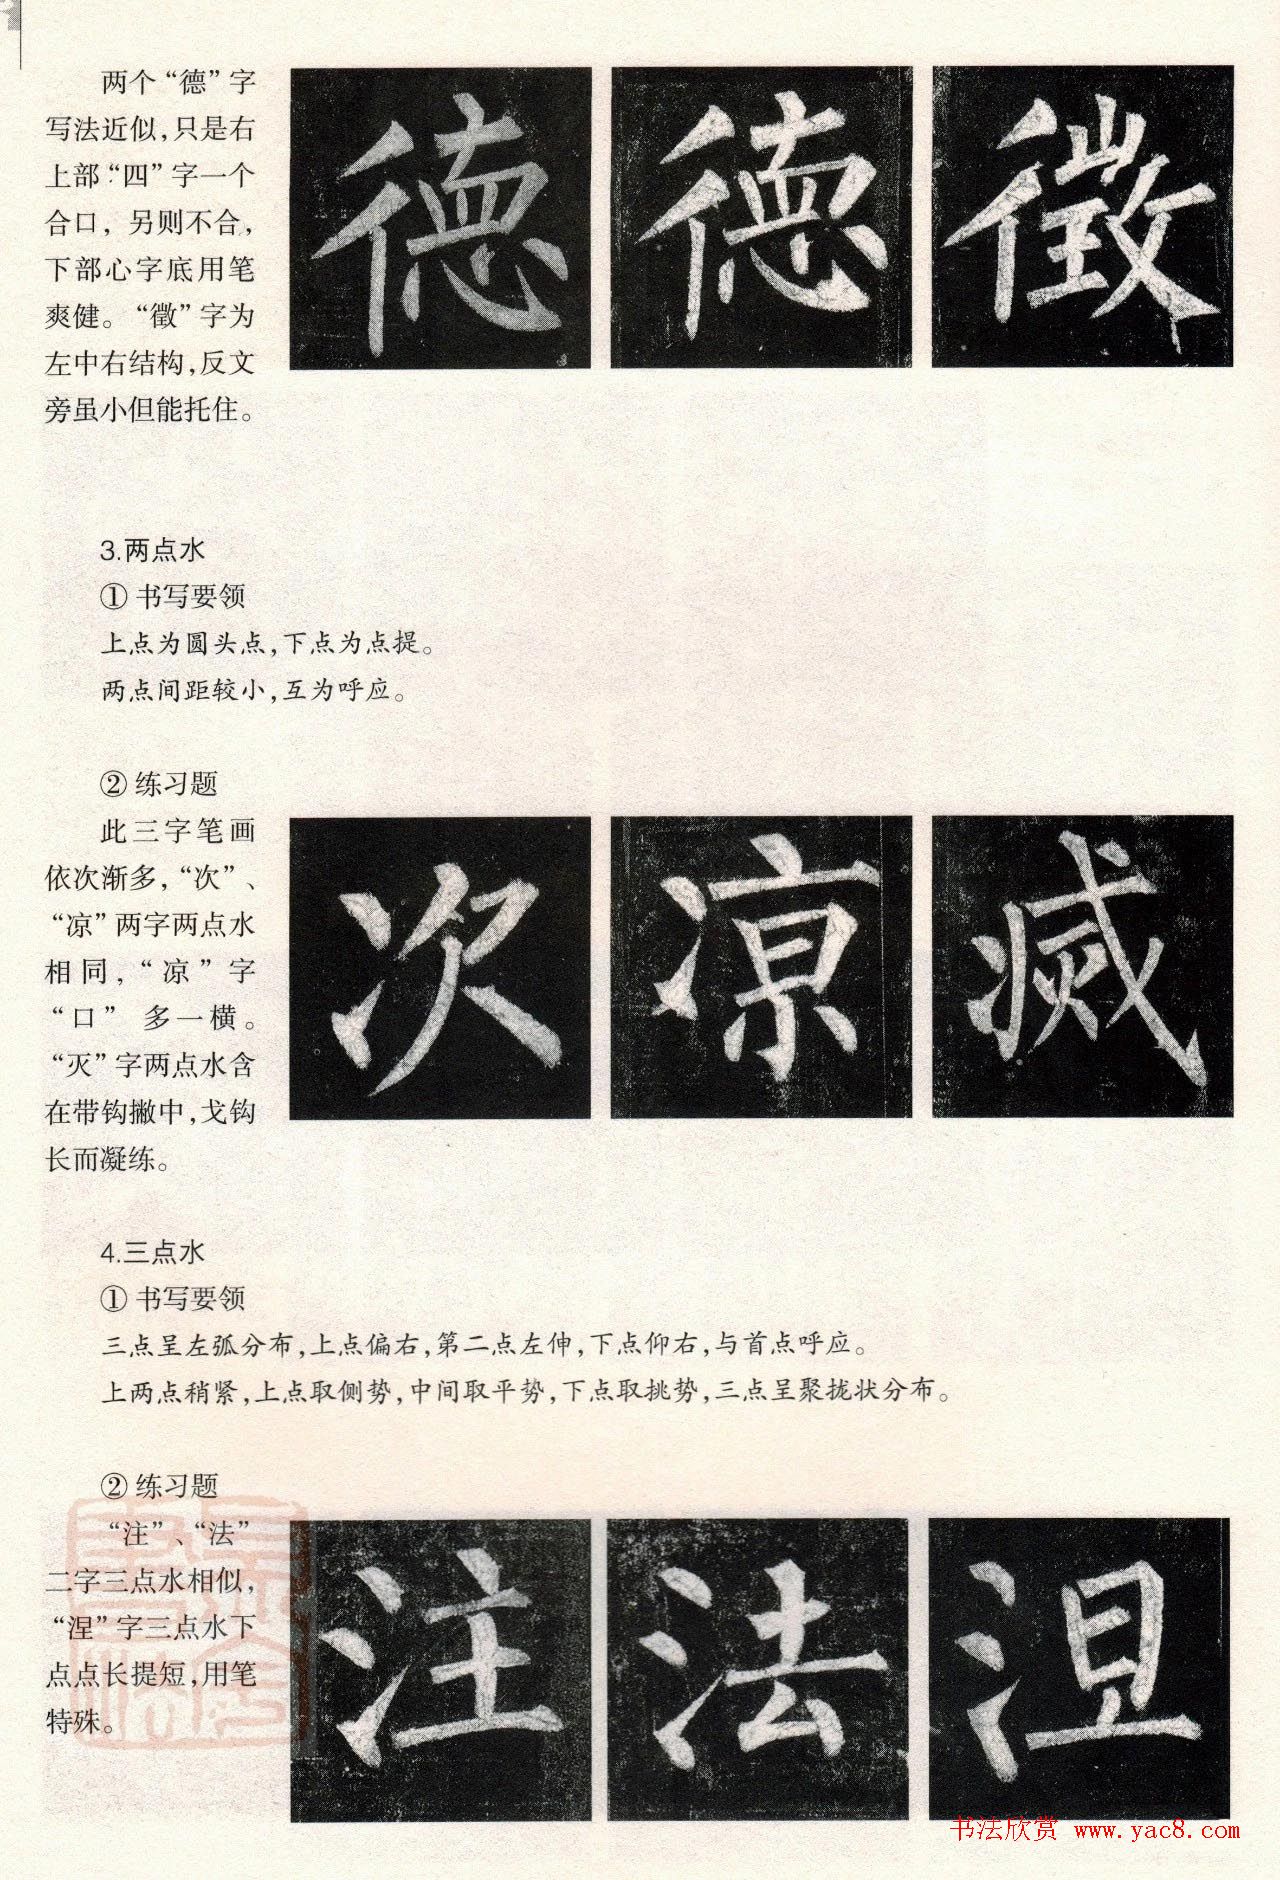 两个“德”字
写法近似,只是右
上部“四”字一个
合口，另则不合,
下部心字底用笔
爽健。“徵”字为
左中右结构,反文
旁虽小但能托住。
德 德 徵
3.两点水
① 书写要领
上点为圆头点,下点为点提。
两点间距较小,互为呼应。
② 练习题
此三字笔画
依次渐多,“次”、
“凉”两字两点水
相同,“凉”字
“口”多一横。
“灭”字两点水含
在带钩撇中,戈钩
长而凝练。
次 凉 滅
4.三点水
① 书写要领
三点呈左弧分布,上点偏右,第二点左伸,下点仰右,与首点呼应。
上两点稍紧,上点取侧势,中间取平势,下点取挑势,三点呈聚拢状分布。
② 练习题
“注”、“法”
二字三点水相似,
“涅”字三点水下
点点长提短,用笔
特殊。
注 法 涅
书法欣赏 www.yac8.com